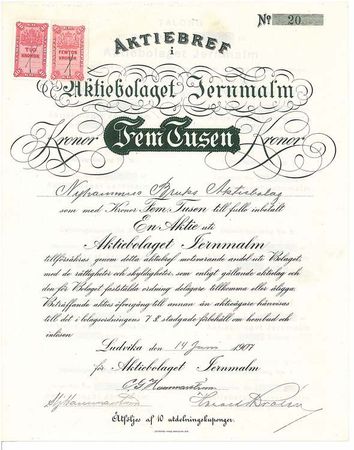 Nº 20
AKTIEBREF
i
Aktiebolaget Jernmalm
Kronor Fem Tusen Kronor
TVÅ KRONOR
FEMTON KRONOR
Nyhammars Bruks Aktiebolag
som med Kronor Fem Tusen till fullo inbetalt
En Aktie uti
Aktiebolaget Jernmalm
tillförsäkras genom detta aktiebref motsvarande andel uti Bolaget,
med de rättigheter och skyldigheter, som enligt gällande aktielag och
den för Bolaget fastställda ordning delägare tillkomma eller åligga.
Beträffande akties öfvergång till annan än aktieägare hänvisas
till det i bolagsordningens 7 § stadgade förbehåll om hembud och
inlösen
Ludvika den 14 Juni 1907
för Aktiebolaget Jernmalm
Åtföljes af 10 utdelningskuponger.